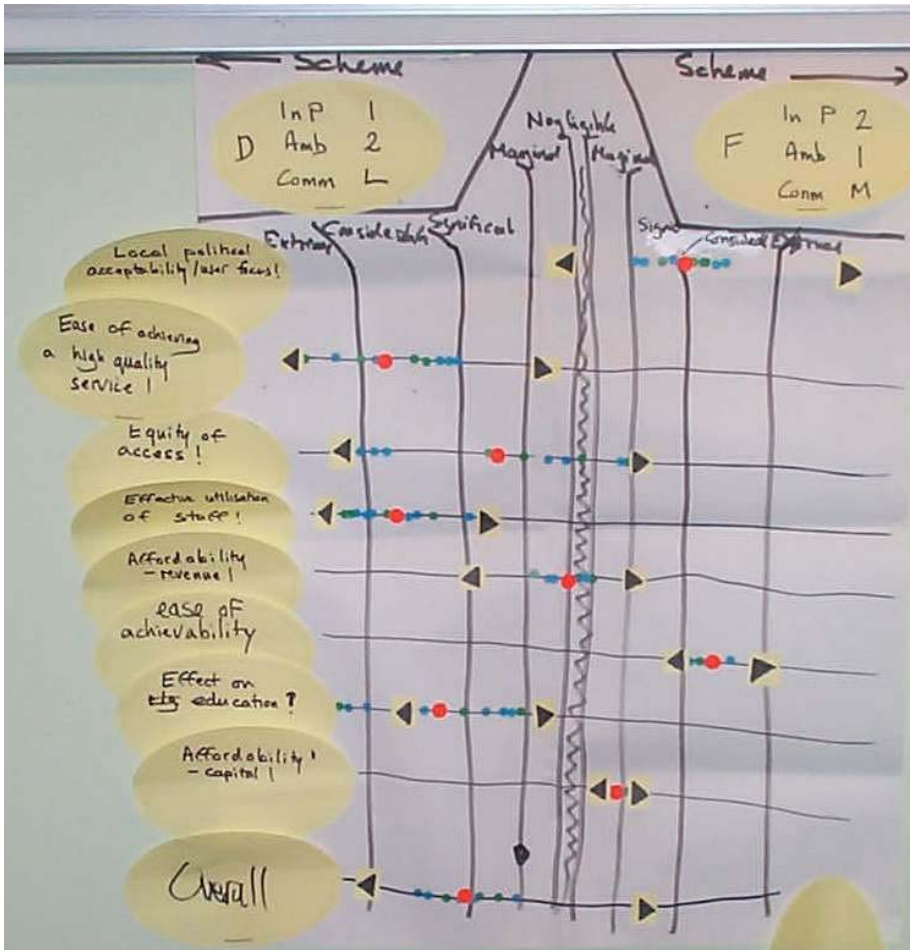 Scheme
Scheme
D
In P 1
Amb 2
Comm L
F
In P 2
Amb 1
Comm M
Negligible
Marginal
Marginal
Extreme
Considerable
Significant
Signif
Considerable
Extreme
Local political
acceptability/user focus!
Ease of achieving
a high quality
service!
Equity of
access!
Effective utilisation
of staff!
Affordability
- revenue!
ease of
achievability
Effect on
education?
Affordability
- capital!
Overall